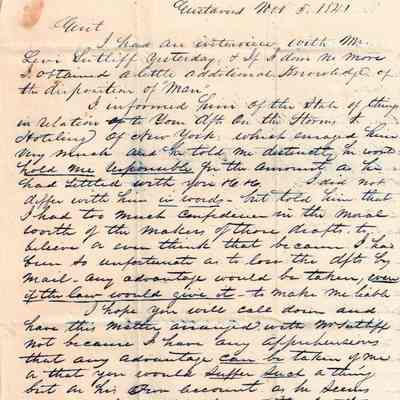 Gustavus Nov 5. 1841
Gent
I had an interview with Mr.
Levi Sutliff Yesterday, & If I done no more
I obtained a little additional Knowledge of
the disposition of Man
I informed him Of the State of things
in relation to Your Dfts On the Storms &
Hoteling Of New York. which enraged him
very much and he told me distinctly he would
hold me responsible for the amounts as he
had Settled with you &c &c, I did not
differ with him in words - but told him that
I had too much Confidence in the Moral
worth of the makers of those drafts. to
believe or even think that because I had
been so unfortunate as to lose the dfts by
mail - any advantage would be taken, even
if the law would give it - to make me liable
I hope you will call down and
have this matter arranged with Mr Sutliff
not because I have any Apprehensions
that any advantage can be taken of me
or that you would suffer such a thing
but on his Own account as he seems